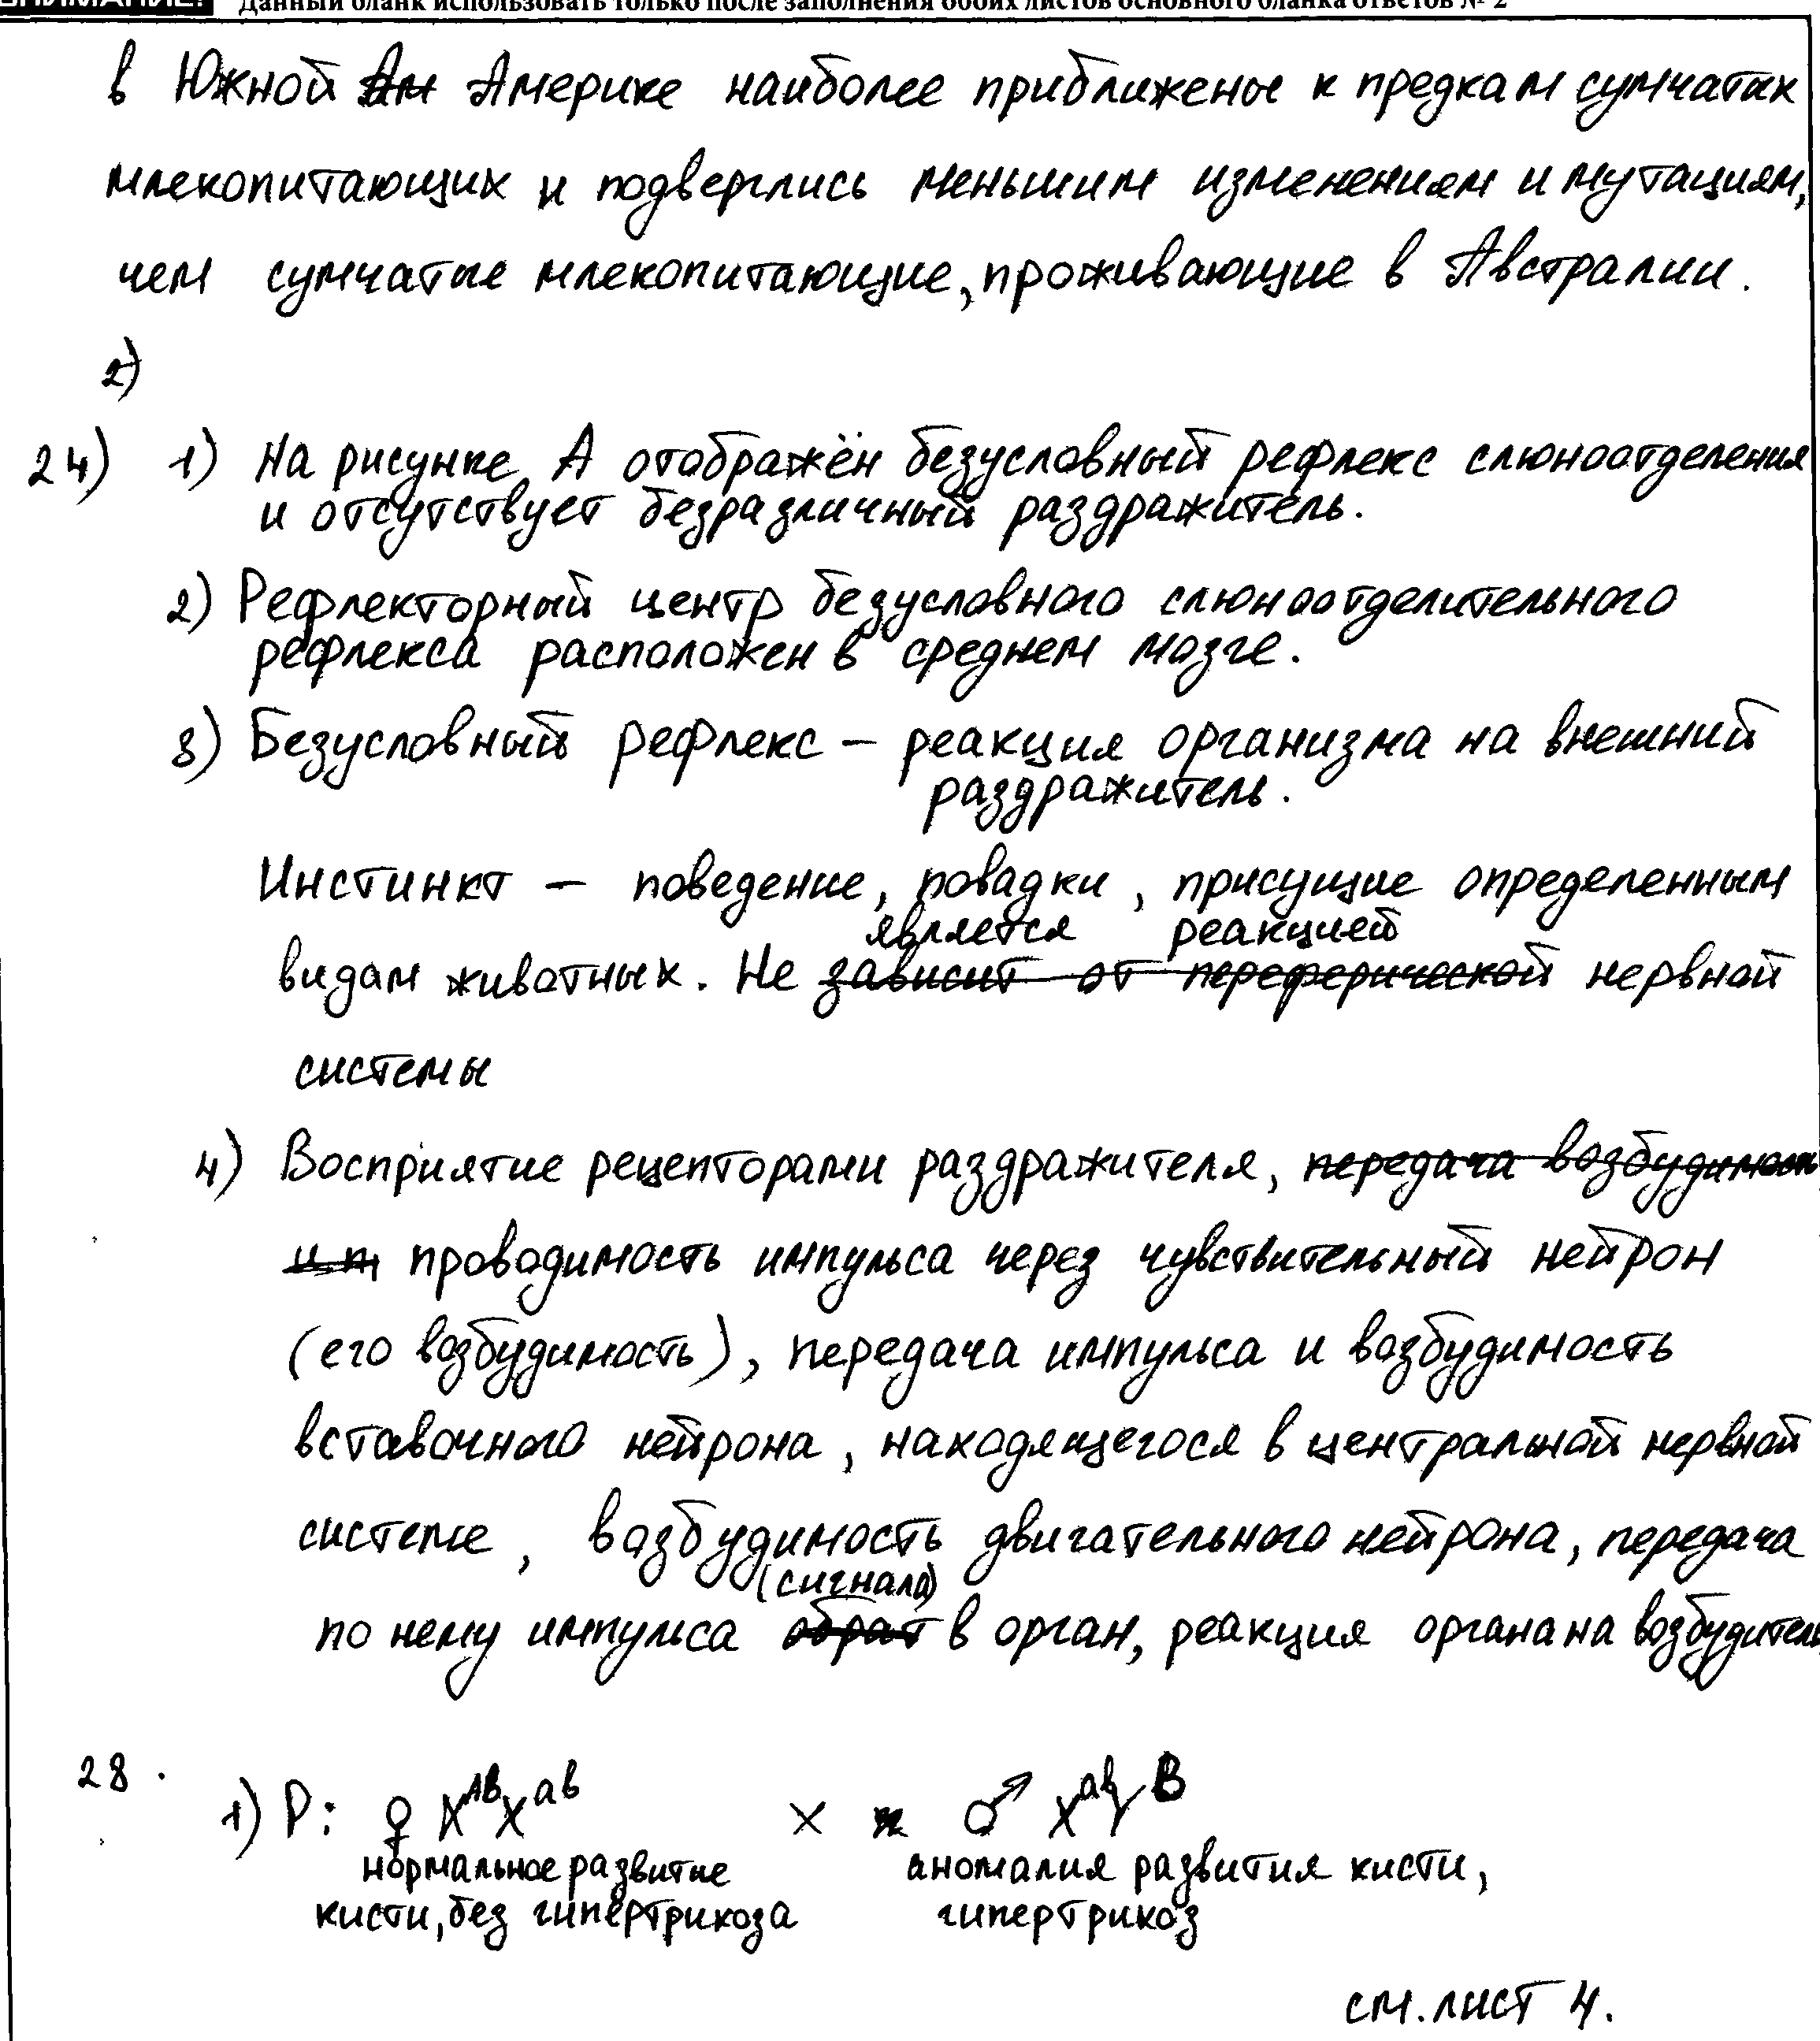 ВНИМАНИЕ! Данный бланк использовать только после заполнения обоих листов основного бланка ответов № 2
в Южной ~~Ам~~ Америке наиболее приближены к предкам сумчатых
млекопитающих и подверглись меньшим изменениям и мутациям,
чем сумчатые млекопитающие, проживающие в Австралии.
2)
24) 1) На рисунке А отображён безусловный рефлекс слюноотделения
и отсутствует безразличный раздражитель.
2) Рефлекторный центр безусловного слюноотделительного
рефлекса расположен в среднем мозге.
3) Безусловный рефлекс – реакция организма на внешний
раздражитель.
Инстинкт – поведение, повадки, присущие определенным
является реакцией
видам животных. Не ~~зависит от переферической~~ нервной
системы
4) Восприятие рецепторами раздражителя, ~~передача возбудимость~~
~~и п~~ проводимость импульса через чувствительный нейрон
(его возбудимость), передача импульса и возбудимость
вставочного нейрона, находящегося в центральной нервной
системе, возбудимость двигательного нейрона, передача
(сигнала)
по нему импульса ~~обрат~~ в орган, реакция органа на возбудитель
28. 1) P: ♀ X^{AB}X^{ab} × ♂ X^{ab}Y^{B}
нормальное развитие аномалия развития кисти,
кисти, без гипертрихоза гипертрихоз
см. лист 4.